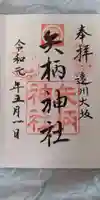 奉拝
遠州大坂
矢柄神社
令和元年五月一日